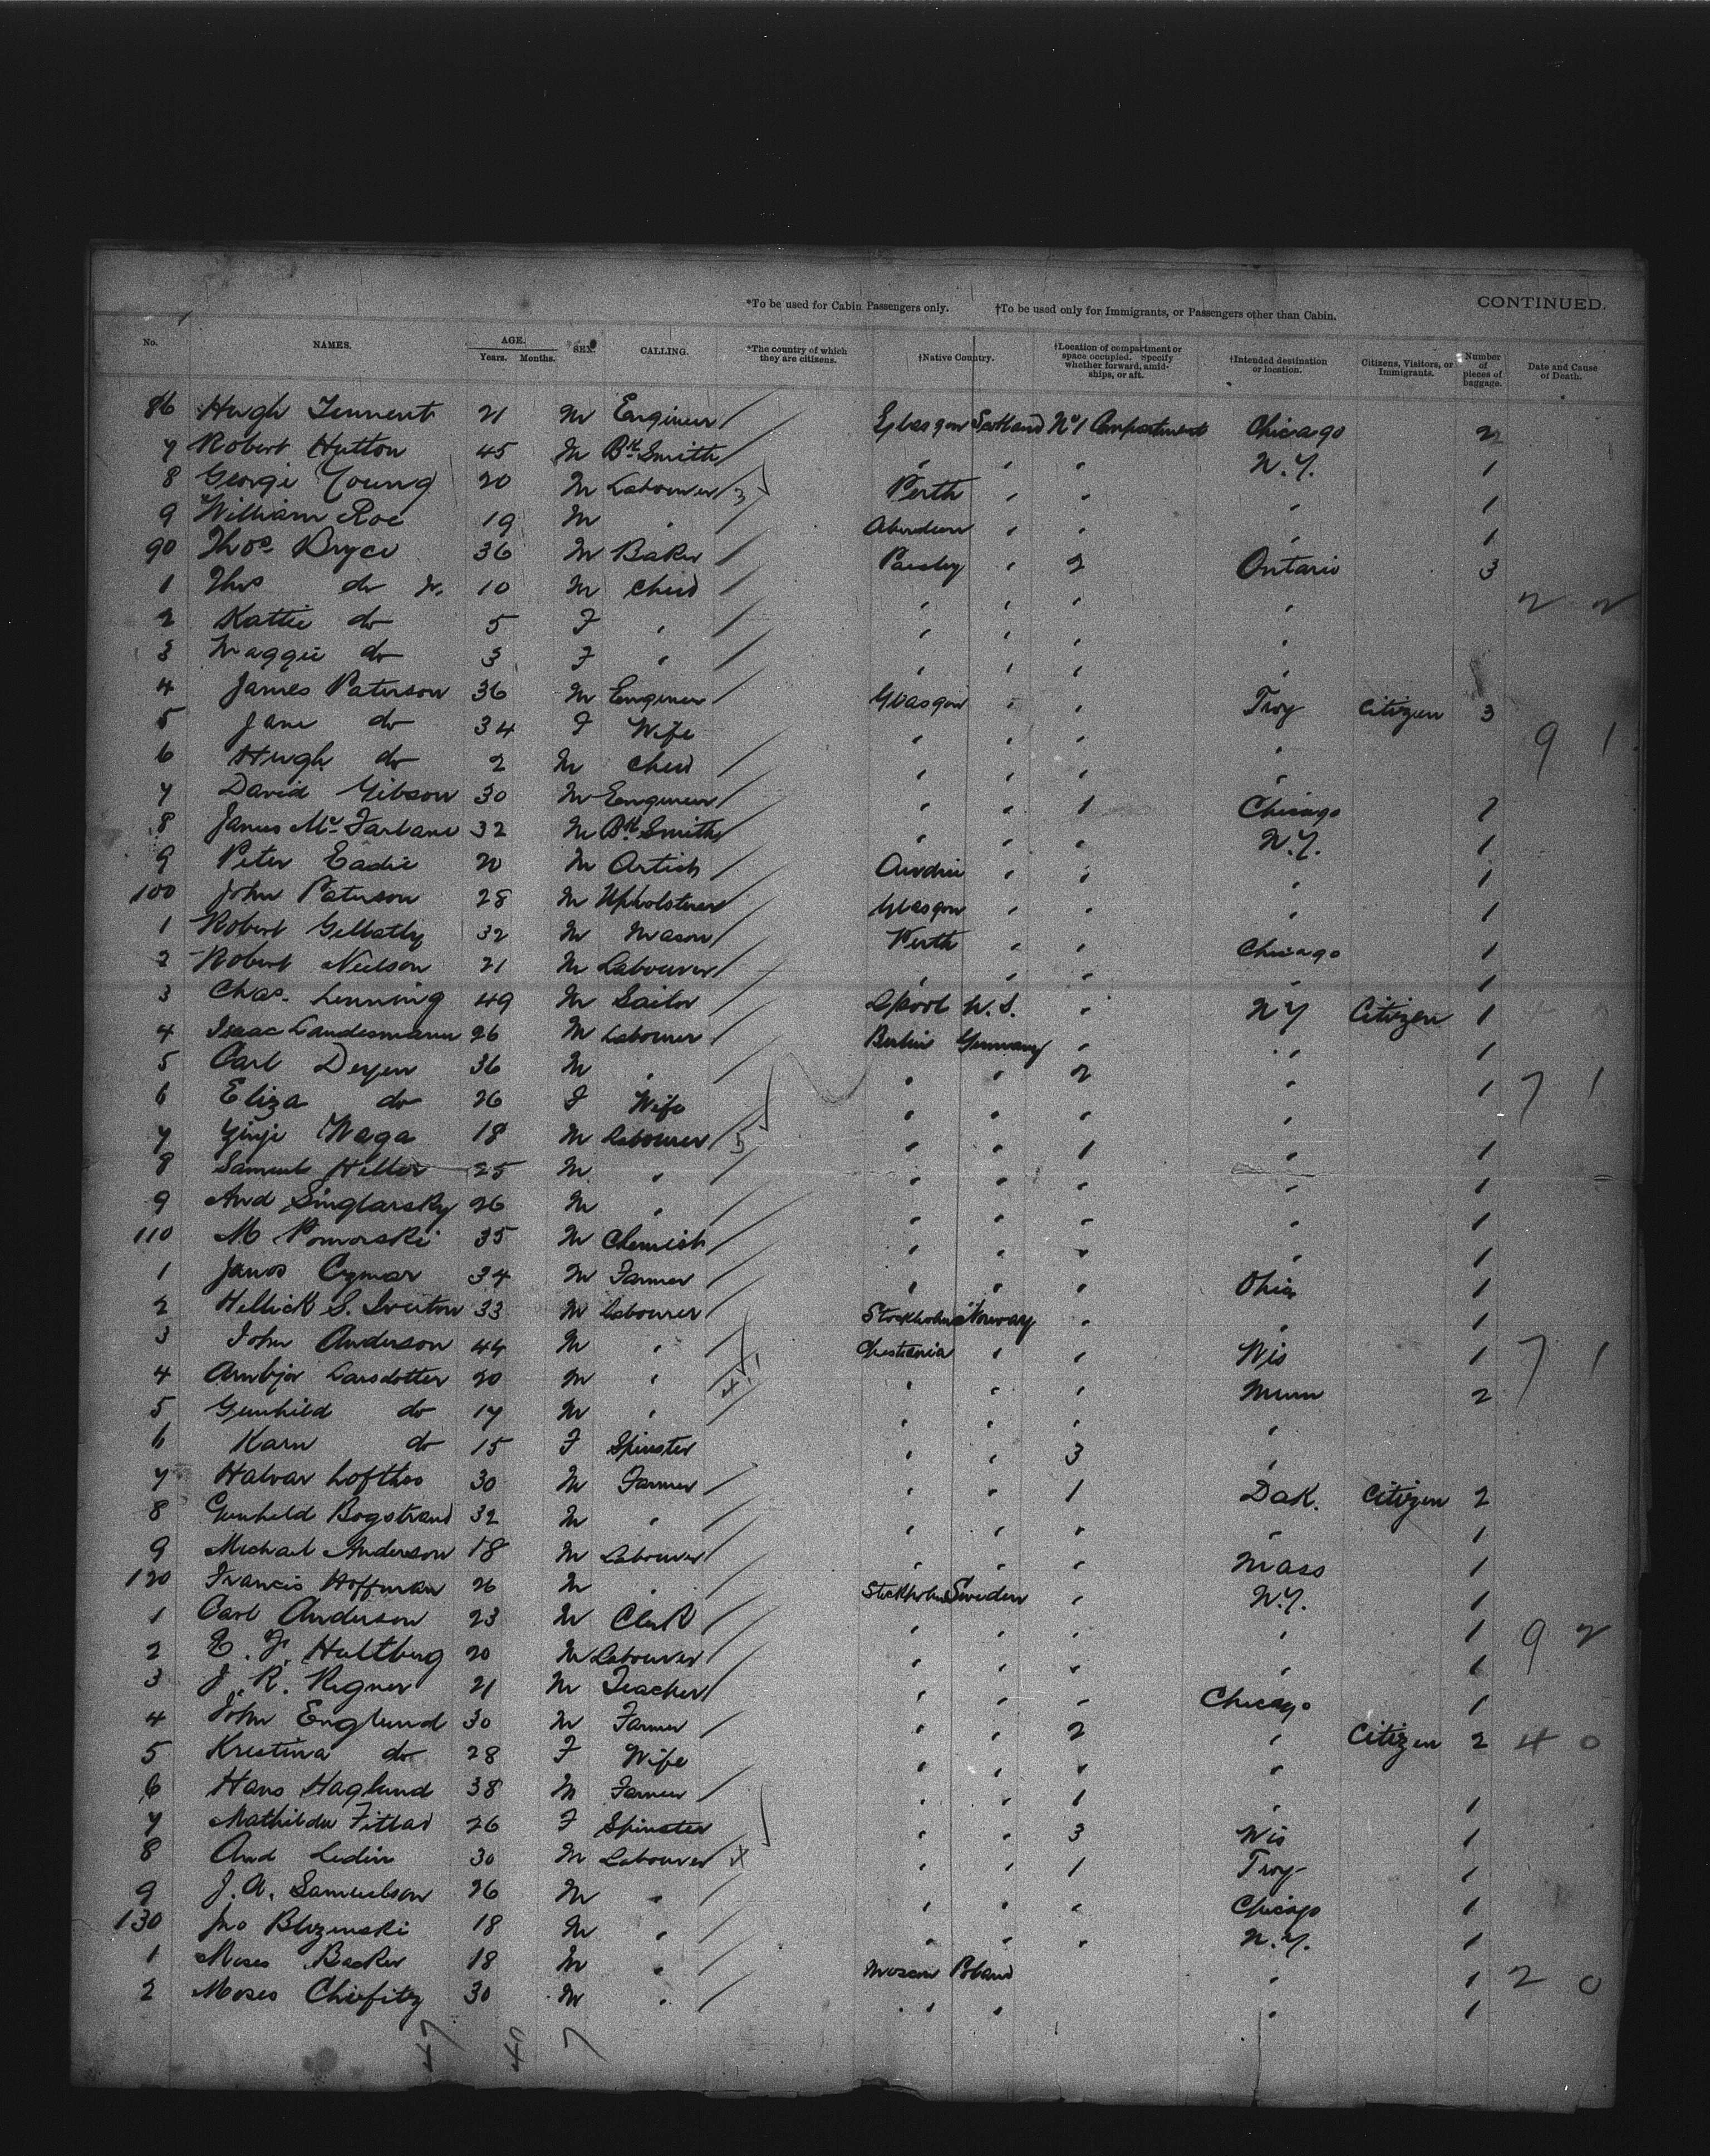 *To be used for Cabin Passengers only. †To be used only for Immigrants, or Passengers other than Cabin. CONTINUED.
No. NAMES. AGE. Years. Months. SEX. CALLING. *The country of which they are citizens. †Native Country. †Location of compartment or space occupied. Specify whether forward, amidships, or aft. †Intended destination or location. Citizens, Visitors, or Immigrants. Number of pieces of baggage. Date and Cause of Death.
86 Hugh Tennent 21 M Engineer Glasgow Scotland No 1 Compartment Chicago 2
7 Robert Hutton 45 M Bk Smith " " " N.Y. 1
8 George Young 20 M Labourer 3 Perth " " " 1
9 William Roe 19 M " Aberdeen " " " 1
90 Thos. Bryce 36 M Baker Paisley " 2 Ontario 3
1 Thos do Jr. 10 M Child " " " " 2 2
2 Kattie do 5 F " " " " "
3 Maggie do 3 F " " " " "
4 James Paterson 36 M Engineer Glasgow " " Troy Citizen 3
5 Jane do 34 F Wife " " " " 9 1
6 Hugh do 2 M Child " " " "
7 David Gibson 30 M Engineer " " 1 Chicago 1
8 James Mc Farlane 32 M Bk Smith " " " N.Y. 1
9 Peter Eadie 20 M Artist Airdrie " " " 1
100 John Paterson 28 M Upholsterer Glasgow " " " 1
1 Robert Gellatly 32 M Mason Perth " " Chicago 1
2 Robert Neilson 21 M Labourer " " " " 1
3 Chas. 49 M Sailor U.S. " N Y Citizen 1
4 Isaac Landesmann 26 M Labourer Berlin Germany " " 1
5 Carl Deyen 36 M " " " 2 " 1 7 1
6 Eliza do 26 F Wife " " " "
7 Waga 18 M Labourer 5 " " 1 " 1
8 Samuel Hiller 25 M " " " " " 1
9 And Singlarsky 26 M " " " " " 1
110 M Pomorski 35 M Chemist " " " " 1
1 Janos Cymar 34 M Farmer " " " Ohio 1
2 33 M Labourer Stockholm Norway " " 1
3 John Anderson 44 M " Christiania " " Wis 1 7 1
4 Larsdotter 20 M " " " " Minn 2
5 Gunhild do 17 M " " " " "
6 Karn do 15 F Spinster " " 3 "
7 Halvar Lofthos 30 M Farmer " " 1 Dak. Citizen 2
8 Gunhild Bogstrand 32 M " " " " " 1
9 Michael Anderson 18 M Labourer " " " Mass 1
120 Francis Hoffman 26 M " Stockholm Sweden " N.Y. 1
1 Carl Anderson 23 M Clerk " " " " 1 9 2
2 E. F. Hultberg 20 M Labourer " " " " 1
3 J. R. Regner 21 M Teacher " " " Chicago 1
4 John Englund 30 M Farmer " " 2 " Citizen 2 4 0
5 Krestina do 28 F Wife " " " "
6 Hans Haglund 38 M Farmer " " 1 " 1
7 Mathilda 26 F Spinster " " 3 Wis 1
8 And Ledin 30 M Labourer X " " 1 Troy 1
9 J. A. Samuelson 26 M " " " " Chicago 1
130 Jno Blizenski 18 M " " " " N.Y. 1
1 Moses Backer 18 M " Moscow Poland " 1 2 0
2 Moses Chiefitz 30 M " " " " 1
47 40 7